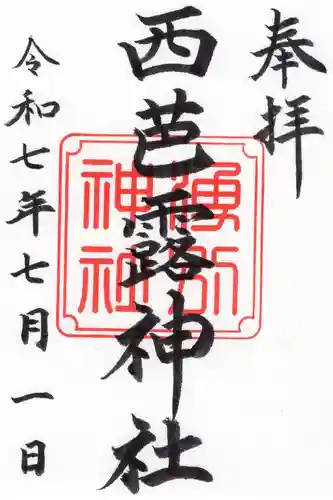 奉拝
西芭露神社
令和七年七月一日
神社